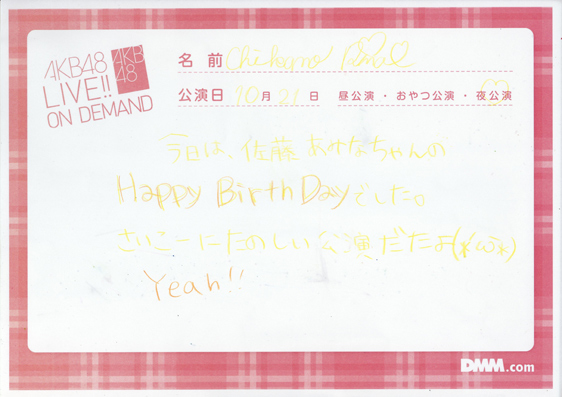 AKB48
LIVE!!
ON DEMAND
AKB
48
名 前 Chikano
公演日 10月21日 昼公演・おやつ公演・夜公演
今日は、佐藤あみなちゃんの
Happy BirthDayでした。
さいこーにたのしい公演だたよ(*ω*)
Yeah!!
DMM.com